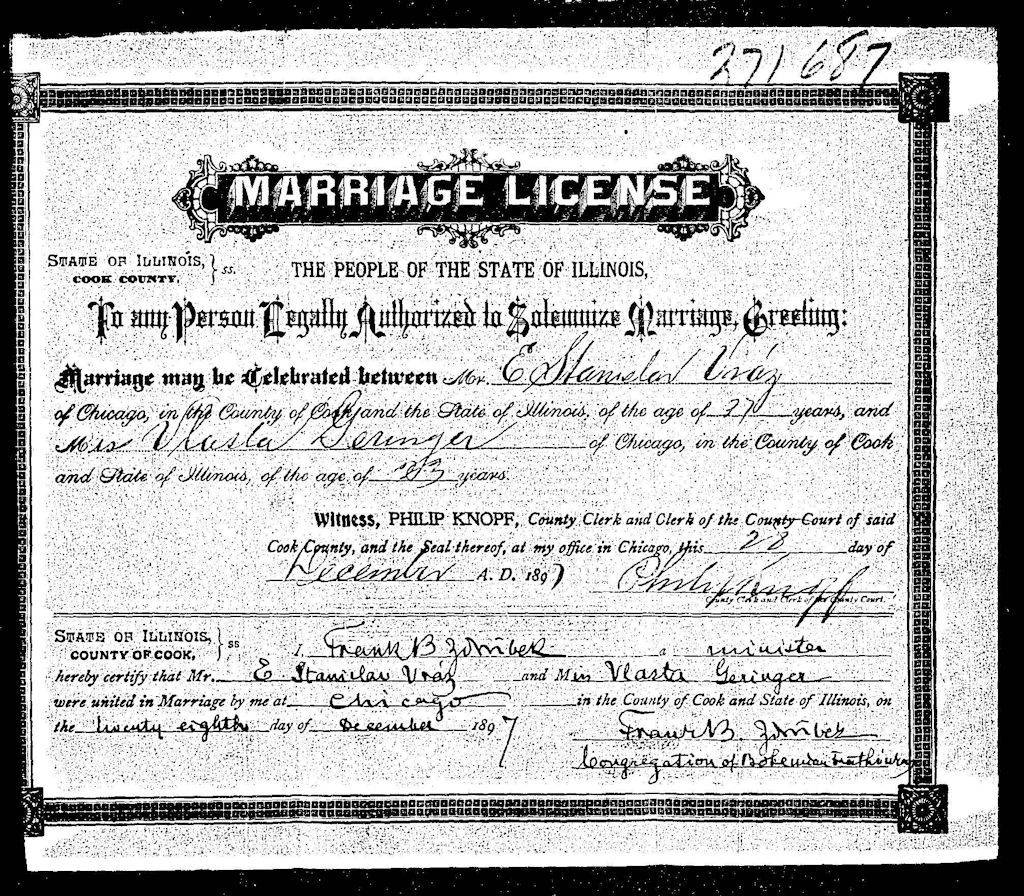 271687
MARRIAGE LICENSE
STATE OF ILLINOIS, } ss. THE PEOPLE OF THE STATE OF ILLINOIS,
COOK COUNTY,
To any Person Legally Authorized to Solemnize Marriage, Greeting:
Marriage may be Celebrated between Mr. E Stanislav Vráz
of Chicago, in the County of Cook, and the State of Illinois, of the age of 37 years, and
Miss Vlasta Geringer of Chicago, in the County of Cook
and State of Illinois, of the age of years.
Witness, PHILIP KNOPF, County Clerk and Clerk of the County Court of said
Cook County, and the Seal thereof, at my office in Chicago, this 28 day of
December A. D. 1897 Philip Knopf
County Clerk and Clerk of the County Court.
STATE OF ILLINOIS, } ss I, Frank B Zdrůbek a minister
COUNTY OF COOK,
hereby certify that Mr. E Stanislav Vráz and Miss Vlasta Geringer
were united in Marriage by me at Chicago in the County of Cook and State of Illinois, on
the twenty eighth day of December 1897
Frank B. Zdrůbek
Congregation of Bohemian